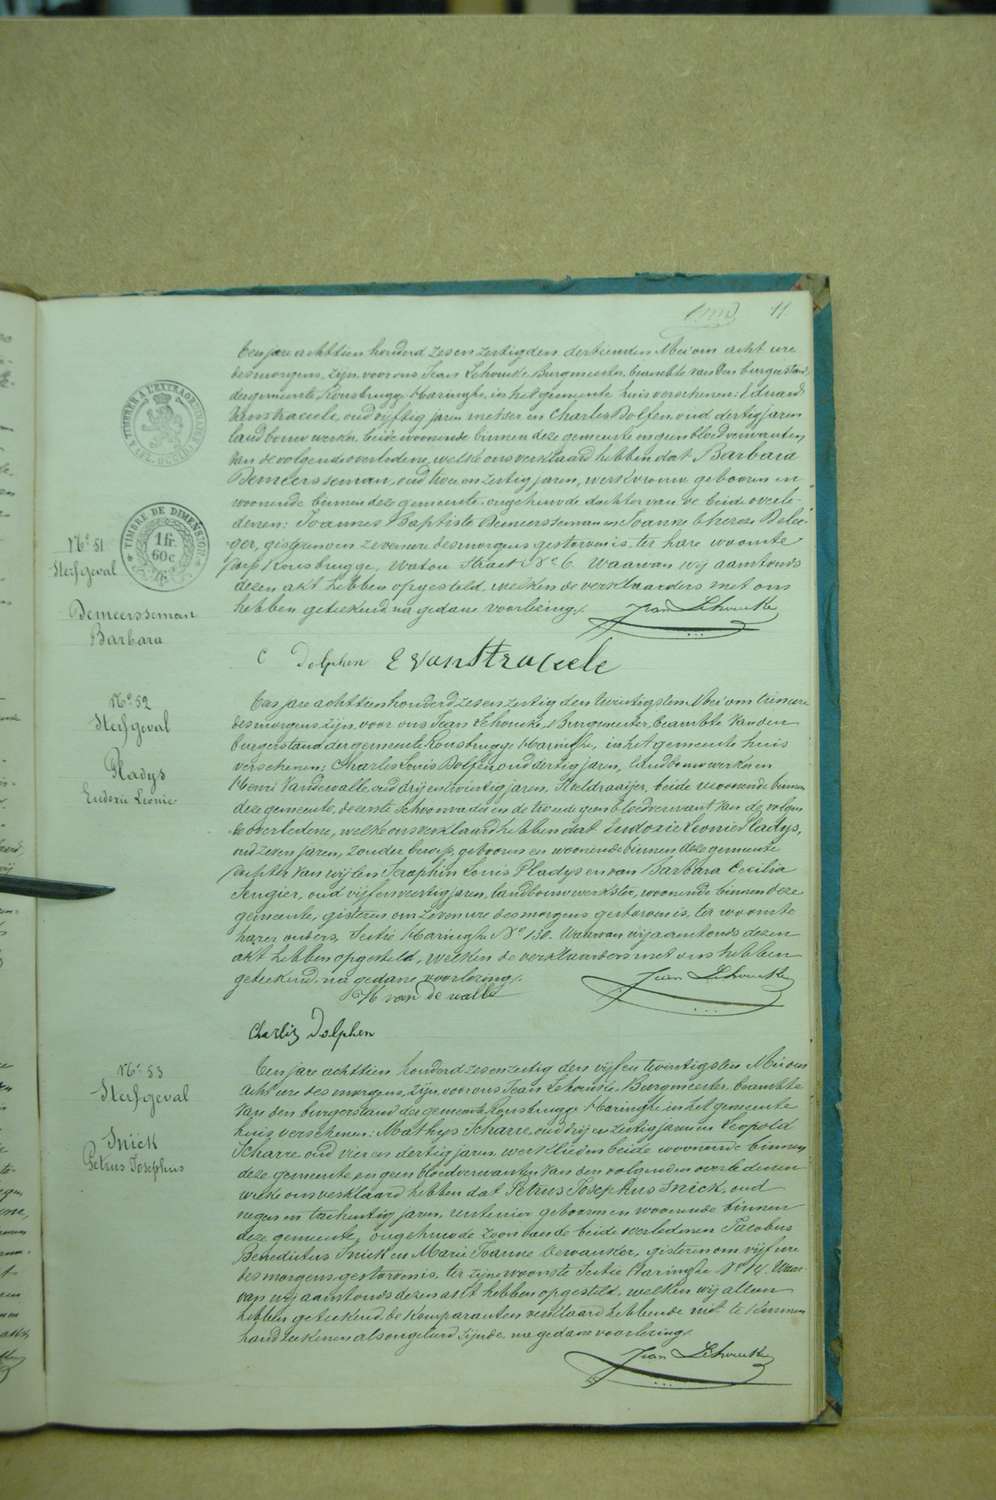 11
Een jare achttien honderd zes en zestig den dertienden Mei om acht ure
des morgens, zijn voor ons Jean Lehoucke Burgmeester, beambte van den burgerstand
der gemeente Rousbrugge Haringhe, in het gemeente huis verschenen: Eduard
Vanstraceele, oud vijftig jaren metser en Charles Dolfen, oud dertig jaren
landbouwwerker, beide woonende binnen deze gemeente en geen bloedverwanten
van de volgende overledene, welke ons verklaard hebben dat Barbara
Demeersseman, oud twee en zestig jaren, werkvrouw geboren en
woonende binnen deze gemeente, ongehuwde dochter van de beide overle-
denen: Joannes Baptiste Demeersseman en Joanna Theresa
gisteren om zeven ure des morgens gestorven is, ter hare woonste
Rousbrugge, Watou Straet No 6. Waarvan wij aanstonds
dezen akt hebben opgesteld, welken de verklaarders met ons
hebben geteekend na gedane voorlezing.
Jean Lehoucke
C Dolphen E vanstraceele
No 51
Sterfgeval
Demeersseman
Barbara
TIMBRE DE DIMENSION
1 fr.
60 c.
No 52
Sterfgeval
Pladys
Eudoxie Leonie
Een jare achttien honderd zes en zestig den twintigsten Mei om tien ure
des morgens zijn, voor ons Jean Lehoucke, Burgmeester, beambte van den
burgerstand der gemeente Rousbrugge Haringhe, in het gemeente huis
verschenen; Charles Louis Dolfen, oud dertig jaren, landbouwwerker en
Henri Vandewalle, oud drij en twintig jaren, Stoeldraaijer, beide woonende binnen
deze gemeente, de eerste schoonvader en de tweede geen bloedverwant van de volgen
de overledene, welke ons verklaard hebben dat Eudoxie Leonie Pladys,
oud zeven jaren, zonder beroep, geboren en woonende binnen deze gemeente
dochter van wijlen Seraphin Louis Pladys en van Barbara Cecilia
oud vijf en veertig jaren, landbouwwerkster, woonende binnen deze
gemeente, gisteren om zeven ure des morgens gestorven is, ter woonste
harer ouders, Sectie Haringhe No 130. Waarvan wij aanstonds dezen
akt hebben opgesteld, welken de verklaarders met ons hebben
geteekend, na gedane voorlezing.
Jean Lehoucke
H van de walle
Charles Dolphen
No 53
Sterfgeval
Snick
Petrus Josephus
Een jare achttien honderd zes en zestig den vijf en twintigsten Mei om
acht ure des morgens, zijn voor ons Jean Lehoucke, Burgmeester, beambte
van den burgerstand der gemeente Rousbrugge Haringhe in het gemeente
huis verschenen: Mathys Scharre, oud drij en zestig jaren en Leopold
Scharre oud vier en dertig jaren, werklieden beide woonende binnen
deze gemeente en geen bloedverwanten van den volgenden overledenen
welke ons verklaard hebben dat Petrus Josephus Snick, oud
negen en tachentig jaren, rentenier geboren en woonende binnen
deze gemeente, ongehuwde zoon van de beide overledenen Jacobus
Benedictus Snick en Marie Joanne gisteren om vijf ure
des morgens gestorven is, ter zijne woonste Sectie Haringhe No 14. Waar-
van wij aanstonds dezen akt hebben opgesteld, welken wij alleen
hebben geteekend, de Komparanten verklaard hebbende niet te kunnen
handteekenen als ongeleerd zijnde, na gedane voorlezing.
Jean Lehoucke